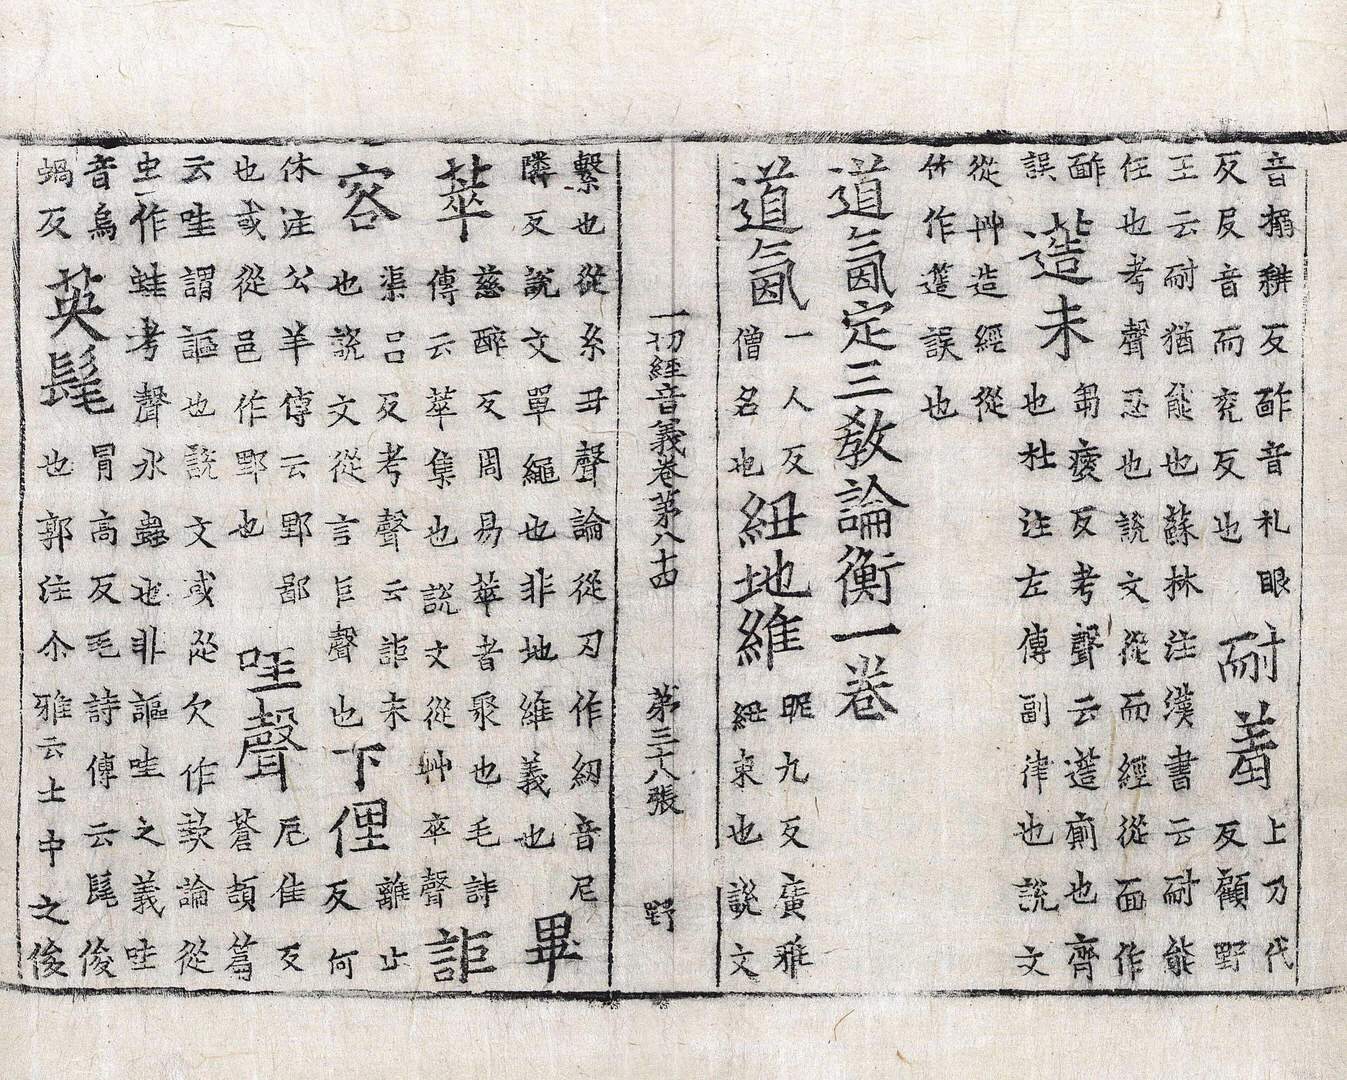 音搦耕反䩆音札眼
反𡰫音而兖反也　耐羞上乃代反顧野
王云耐猶能也蘇林注漢書云耐能
任也考聲忍也說文從而經從面作
䩆誤　䔏未芻瘦反考聲云䔏廁也齊
也杜注左傳副倅也說文
從艸造經從
竹作簉誤也
道氤定三教論衡一卷
道氤一人反僧名也紐地維昵九反廣雅紐束也說文
一切經音義卷第八十四　第三十八張　野
繫也從糸丑聲論從刃作紉音尼
隣反說文單繩也非地維義也畢
萃慈醉反周易萃者聚也毛詩傳云萃集也說文從艸卒聲詎
渠呂反考聲云詎未也說文從言巨聲也下俚離止反何
休注公羊傳云野鄙
也或從邑作野也哇聲厄佳反蒼頡篇
云哇謂謳也說文或從欠作㰪論從
虫作蛙考聲水蟲也非謳哇之義哇
音烏蝸反英髦冒高反毛詩傳云髦俊
也郭注尒雅云士中之俊